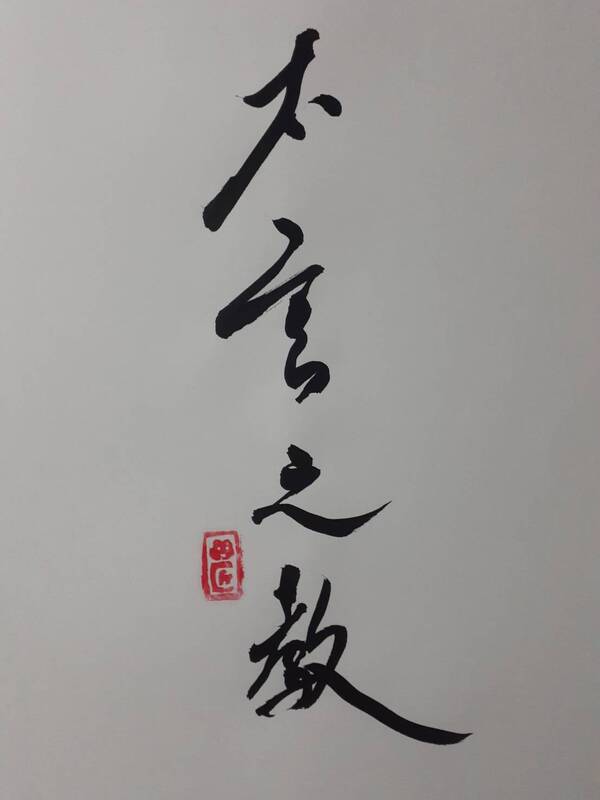 不言之教